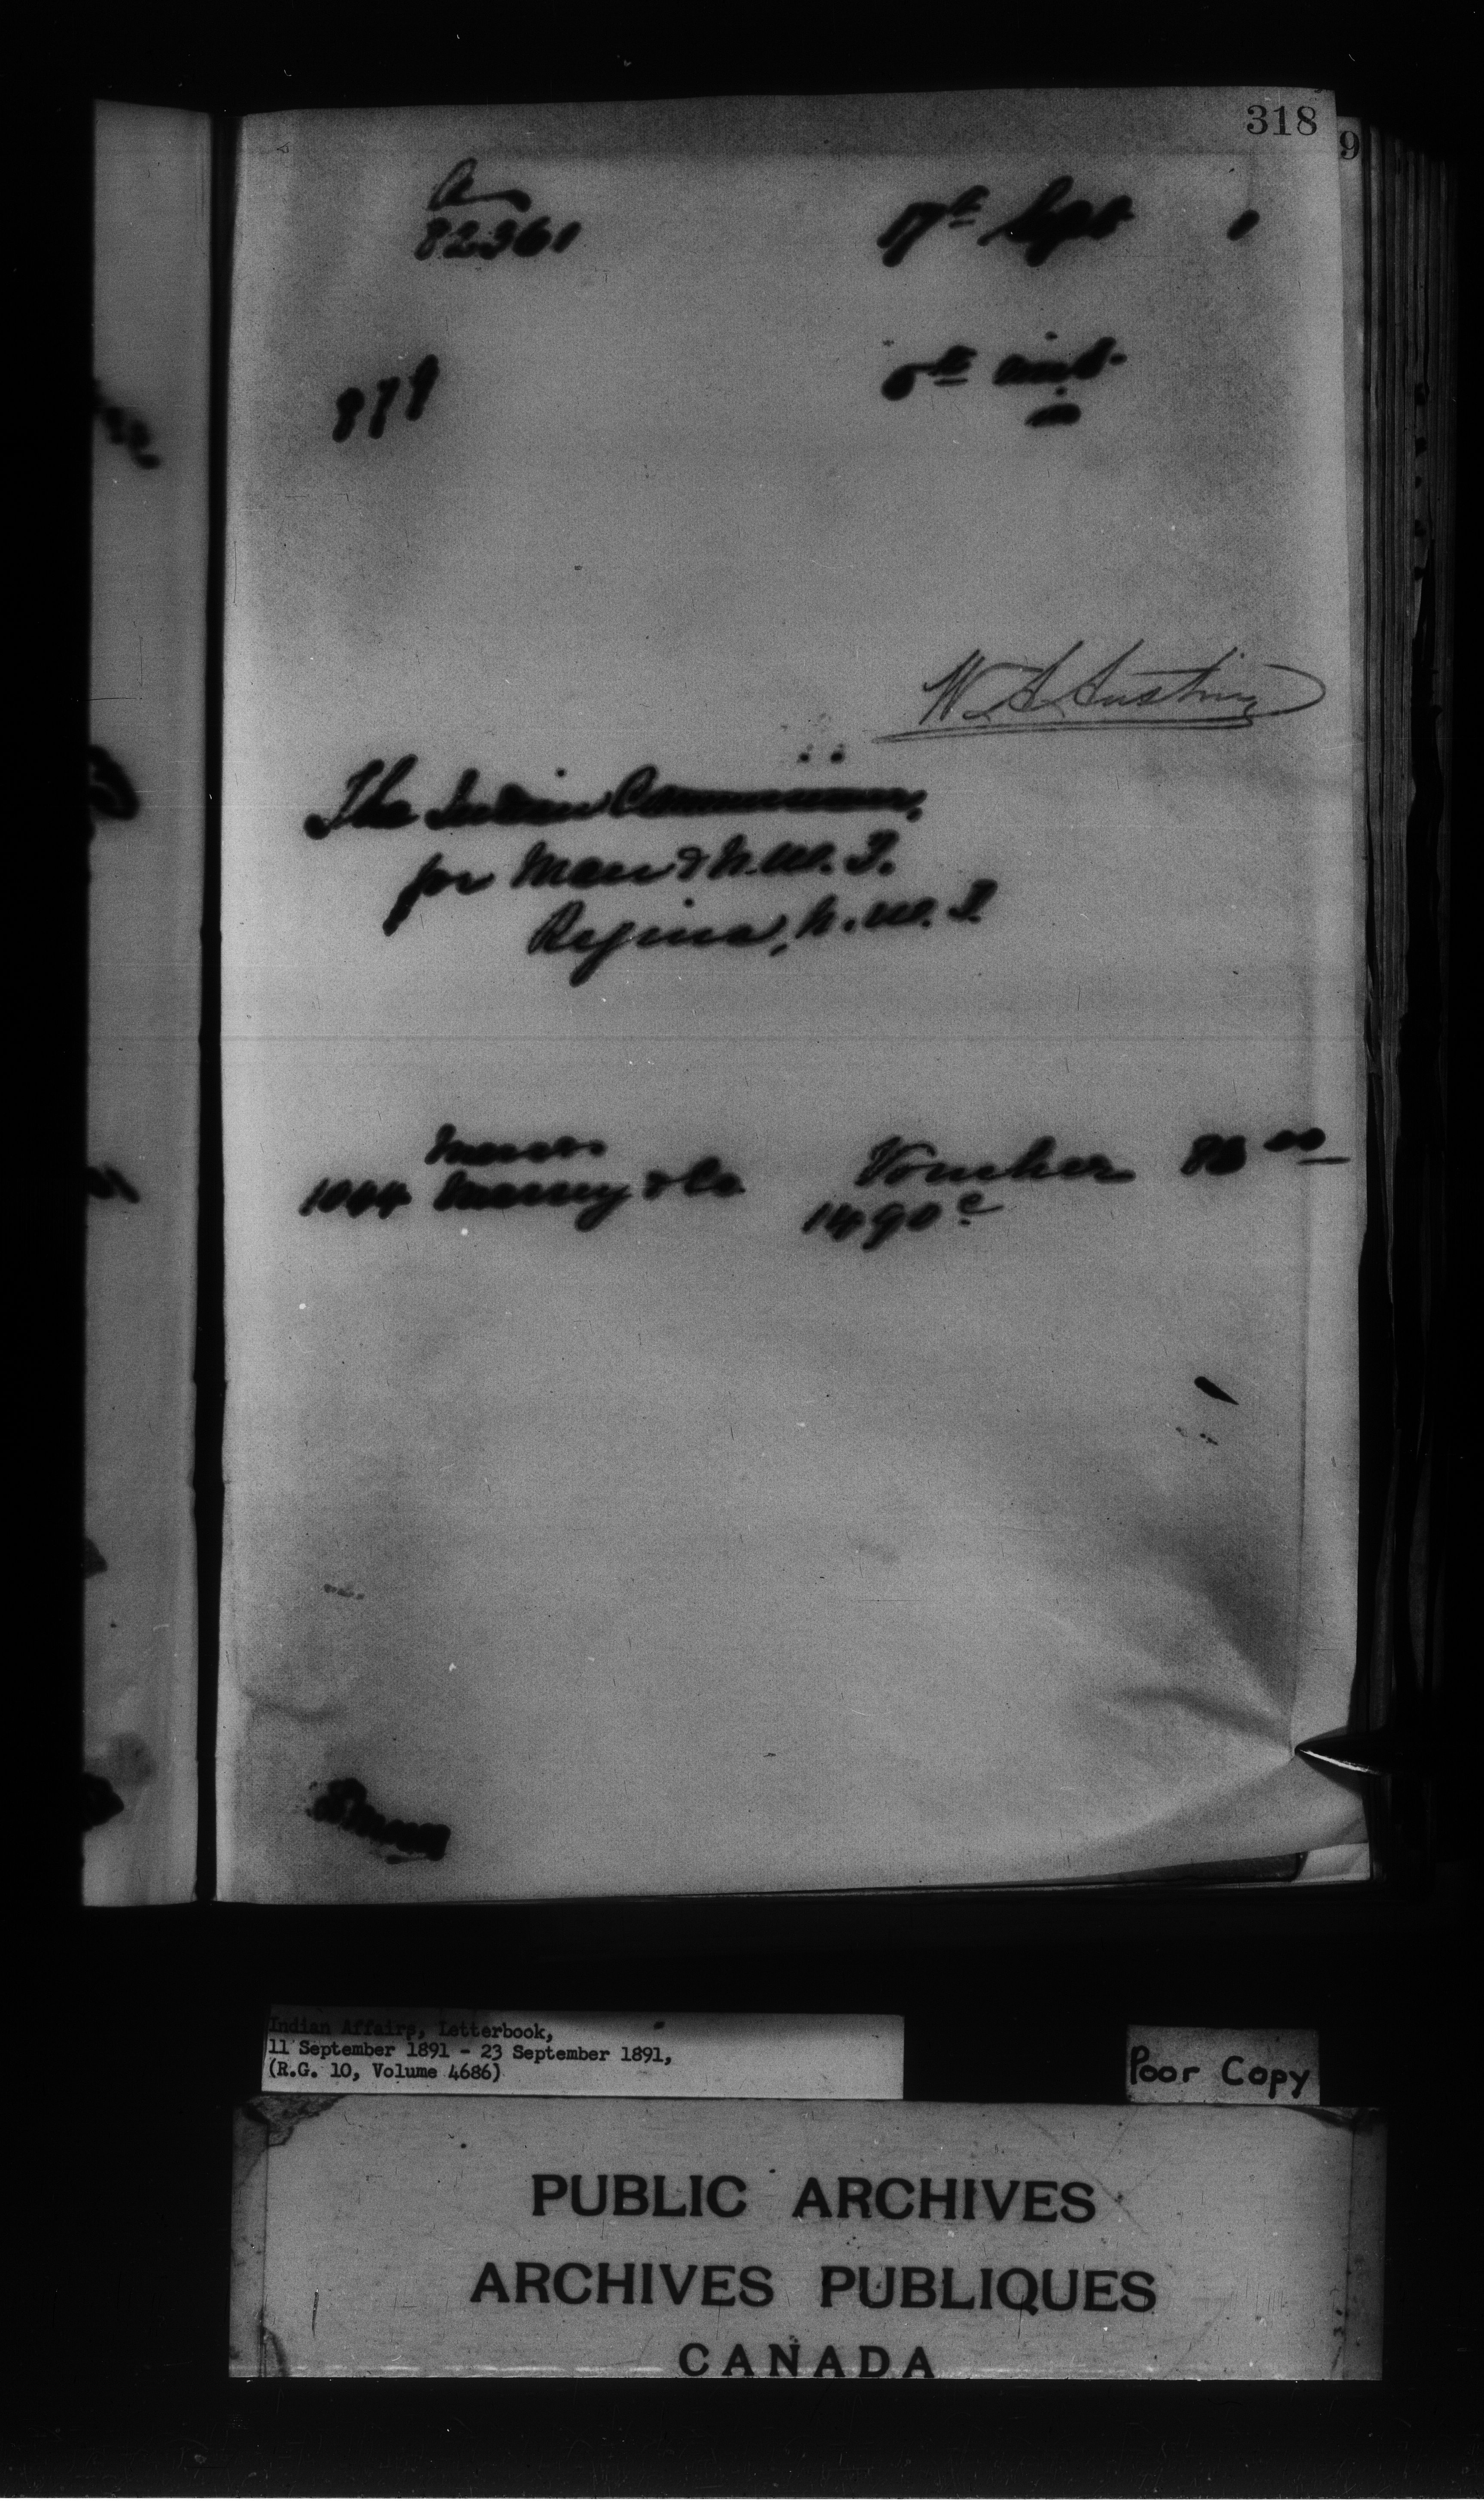 318
9
A
82361
17th Sept 1
879
5th inst
W. A. Austin
The Indian Commissioner,
for Man & N.W.T.
Regina, N.W.T.
Messrs
1044 Massey & Co Voucher
1490 c
Indian Affairs, Letterbook,
11 September 1891 - 23 September 1891,
(R.G. 10, Volume 4686)
Poor Copy
PUBLIC ARCHIVES
ARCHIVES PUBLIQUES
CANADA